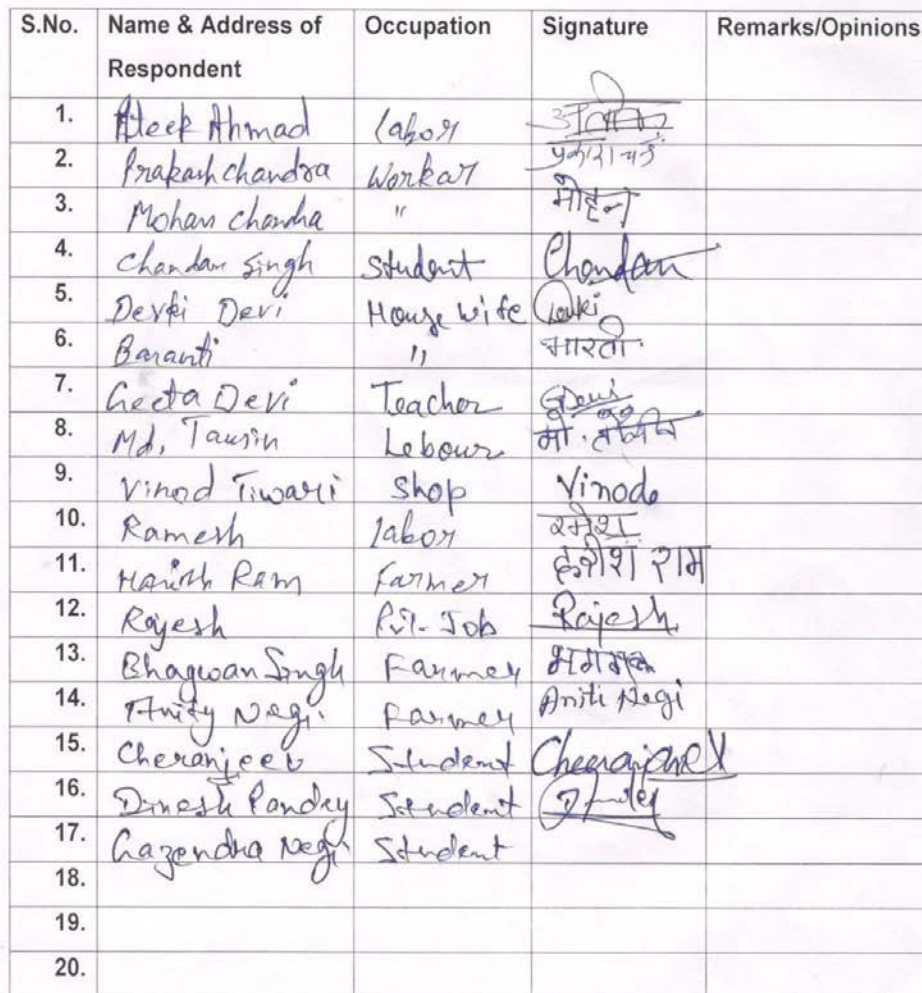 S.No. Name & Address of Respondent Occupation Signature Remarks/Opinions
1. Ateek Ahmad labor
2. Prakash chandra Workar प्रकाश चंद्र
3. Mohan chandra " मोहन
4. Chandan Singh Student Chandan
5. Devki Devi House wife
6. " भारती
7. Geeta Devi Teacher GDevi
8. Md. Tausin Lebour मो.
9. Vinod Tiwari Shop Vinode
10. Ramesh labor रमेश
11. Harish Ram farmer हरीश राम
12. Rajesh Pvt. Job Rajesh
13. Bhagwan Singh Farmer
14. Negi Farmer Aniti Negi
15. Cheranjeev Student
16. Dinesh Pandey Student
17. Gazendra Negi Student
18.
19.
20.